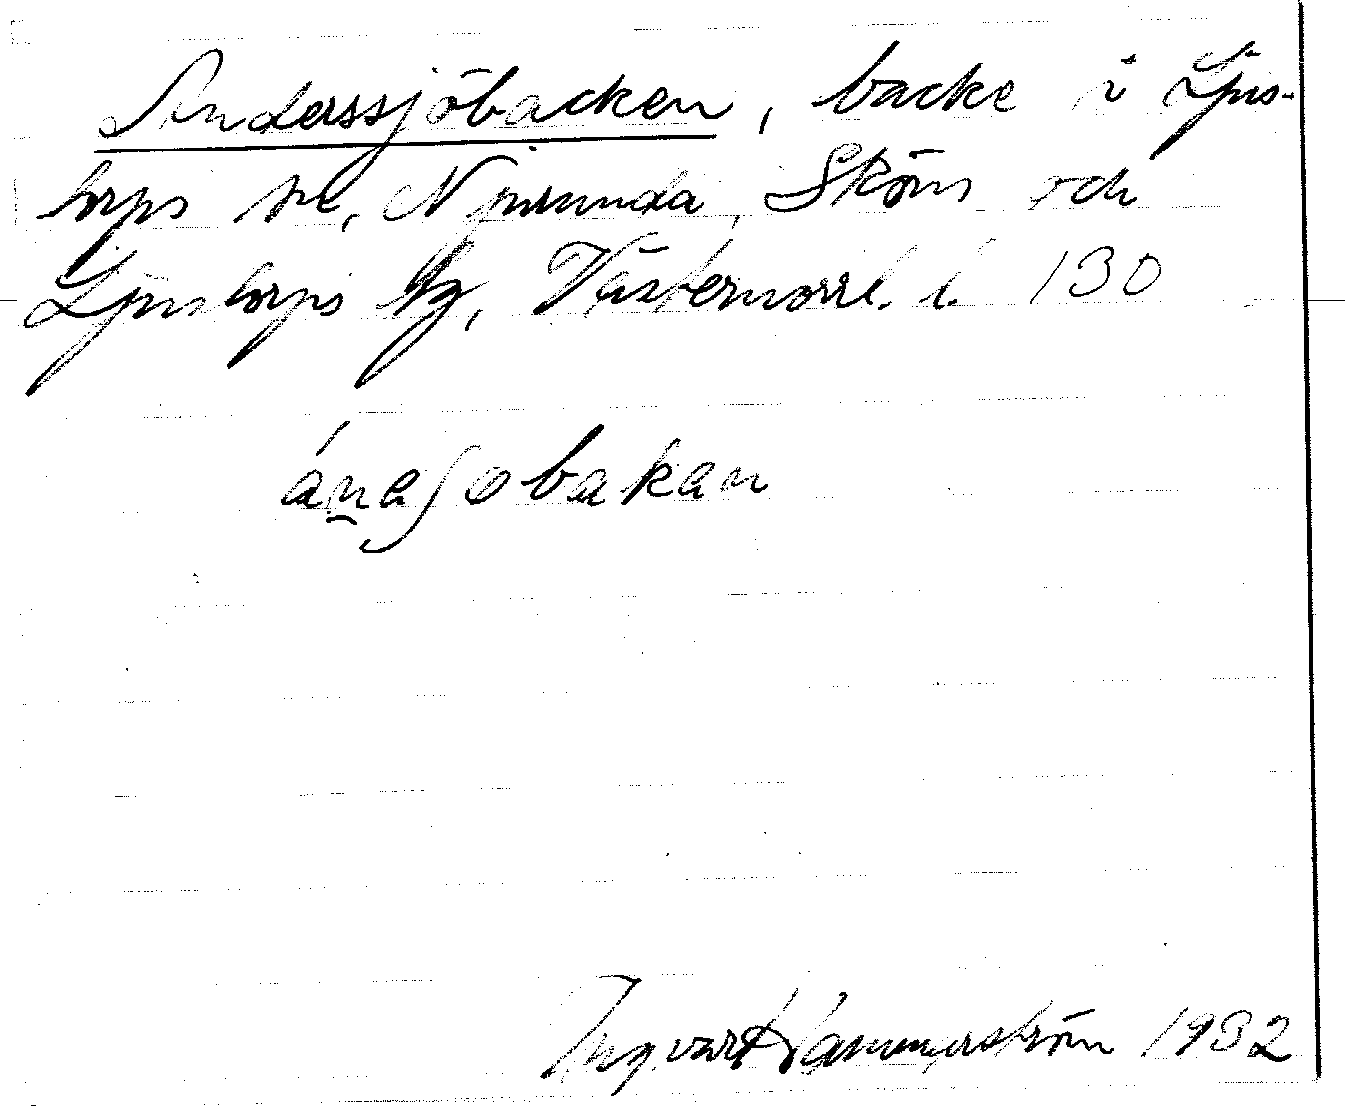 Anderssjöbacken, backe i Ljus-
torps sn, Njurunda, Sköns och
Ljustorps tg, Västernorrl. l. 130
ánaʃobakan
Ingvar Hammarström 1932